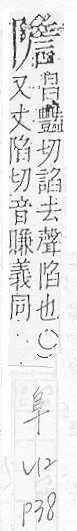 昌豔切諂去聲陷也〇
又丈陷切音賺義同
阜
V12
P38